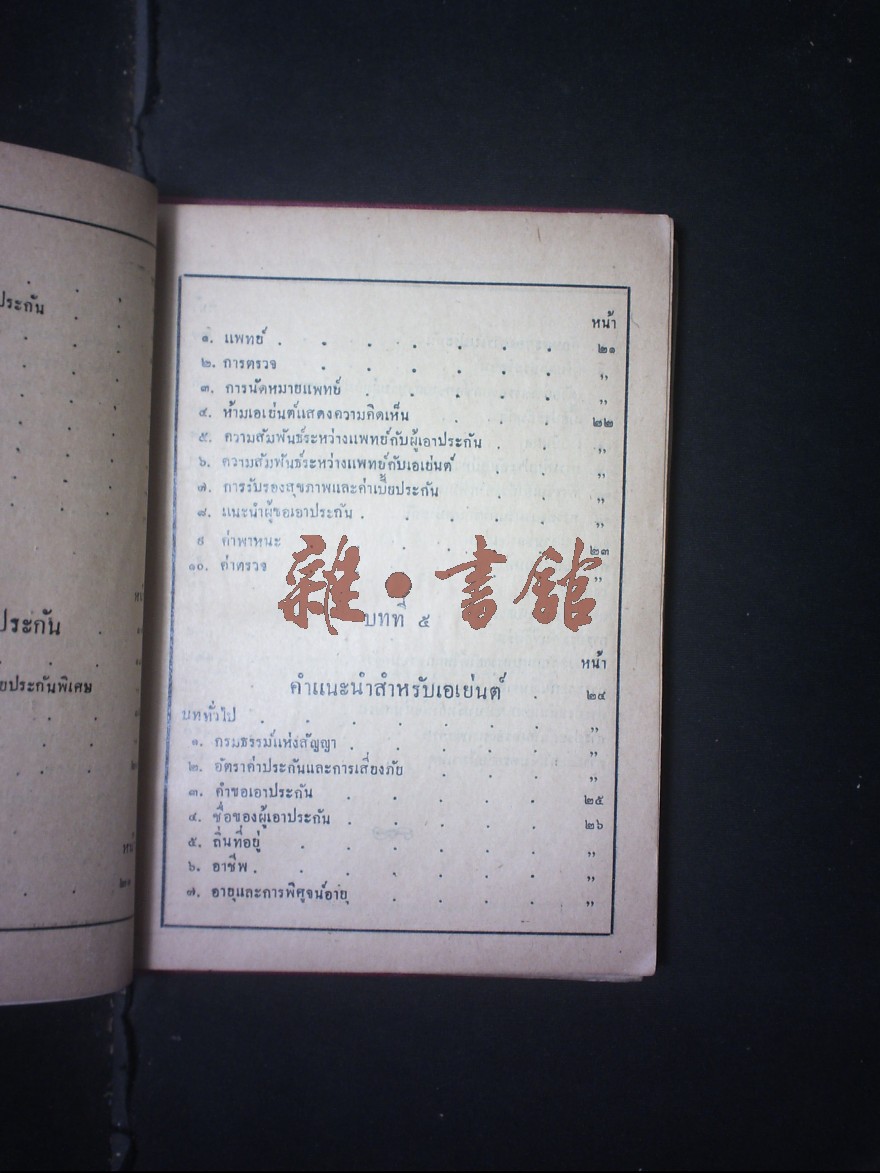 ประกัน
ประกัน
ยประกันพิเศษ
หน้า
๑. แพทย์ . . . . . . . ๒๑
๒. การตรวจ . . . . . . ,,
๓. การนัดหมายแพทย์ . . . . . ,,
๔. ห้ามเอเย่นต์แสดงความคิดเห็น . . . . ๒๒
๕. ความสัมพันธ์ระหว่างแพทย์กับผู้เอาประกัน . . . ,,
๖. ความสัมพันธ์ระหว่างแพทย์กับเอเย่นต์ . . . ,,
๗. การรับรองสุขภาพและค่าเบี้ยประกัน . . . ,,
๘. แนะนำผู้ขอเอาประกัน . . . . . ,,
๙ ค่าพาหนะ . . . . . . ๒๓
๑๐. ค่าตรวจ ,,
雜・書館
บทที่ ๕
หน้า
คำแนะนำสำหรับเอเย่นต์ . ๒๔
บททั่วไป . . . . . . . ,,
๑. กรมธรรม์แห่งสัญญา . . . . . ,,
๒. อัตราค่าประกันและการเสี่ยงภัย . . . ,,
๓. คำขอเอาประกัน . . . . . ๒๕
๔. ชื่อของผู้เอาประกัน . . . . . ๒๖
๕. ถิ่นที่อยู่ . . . . . . ,,
๖. อาชีพ . . . . . . . ,,
๗. อายุและการพิศูจน์อายุ . . . . ,,